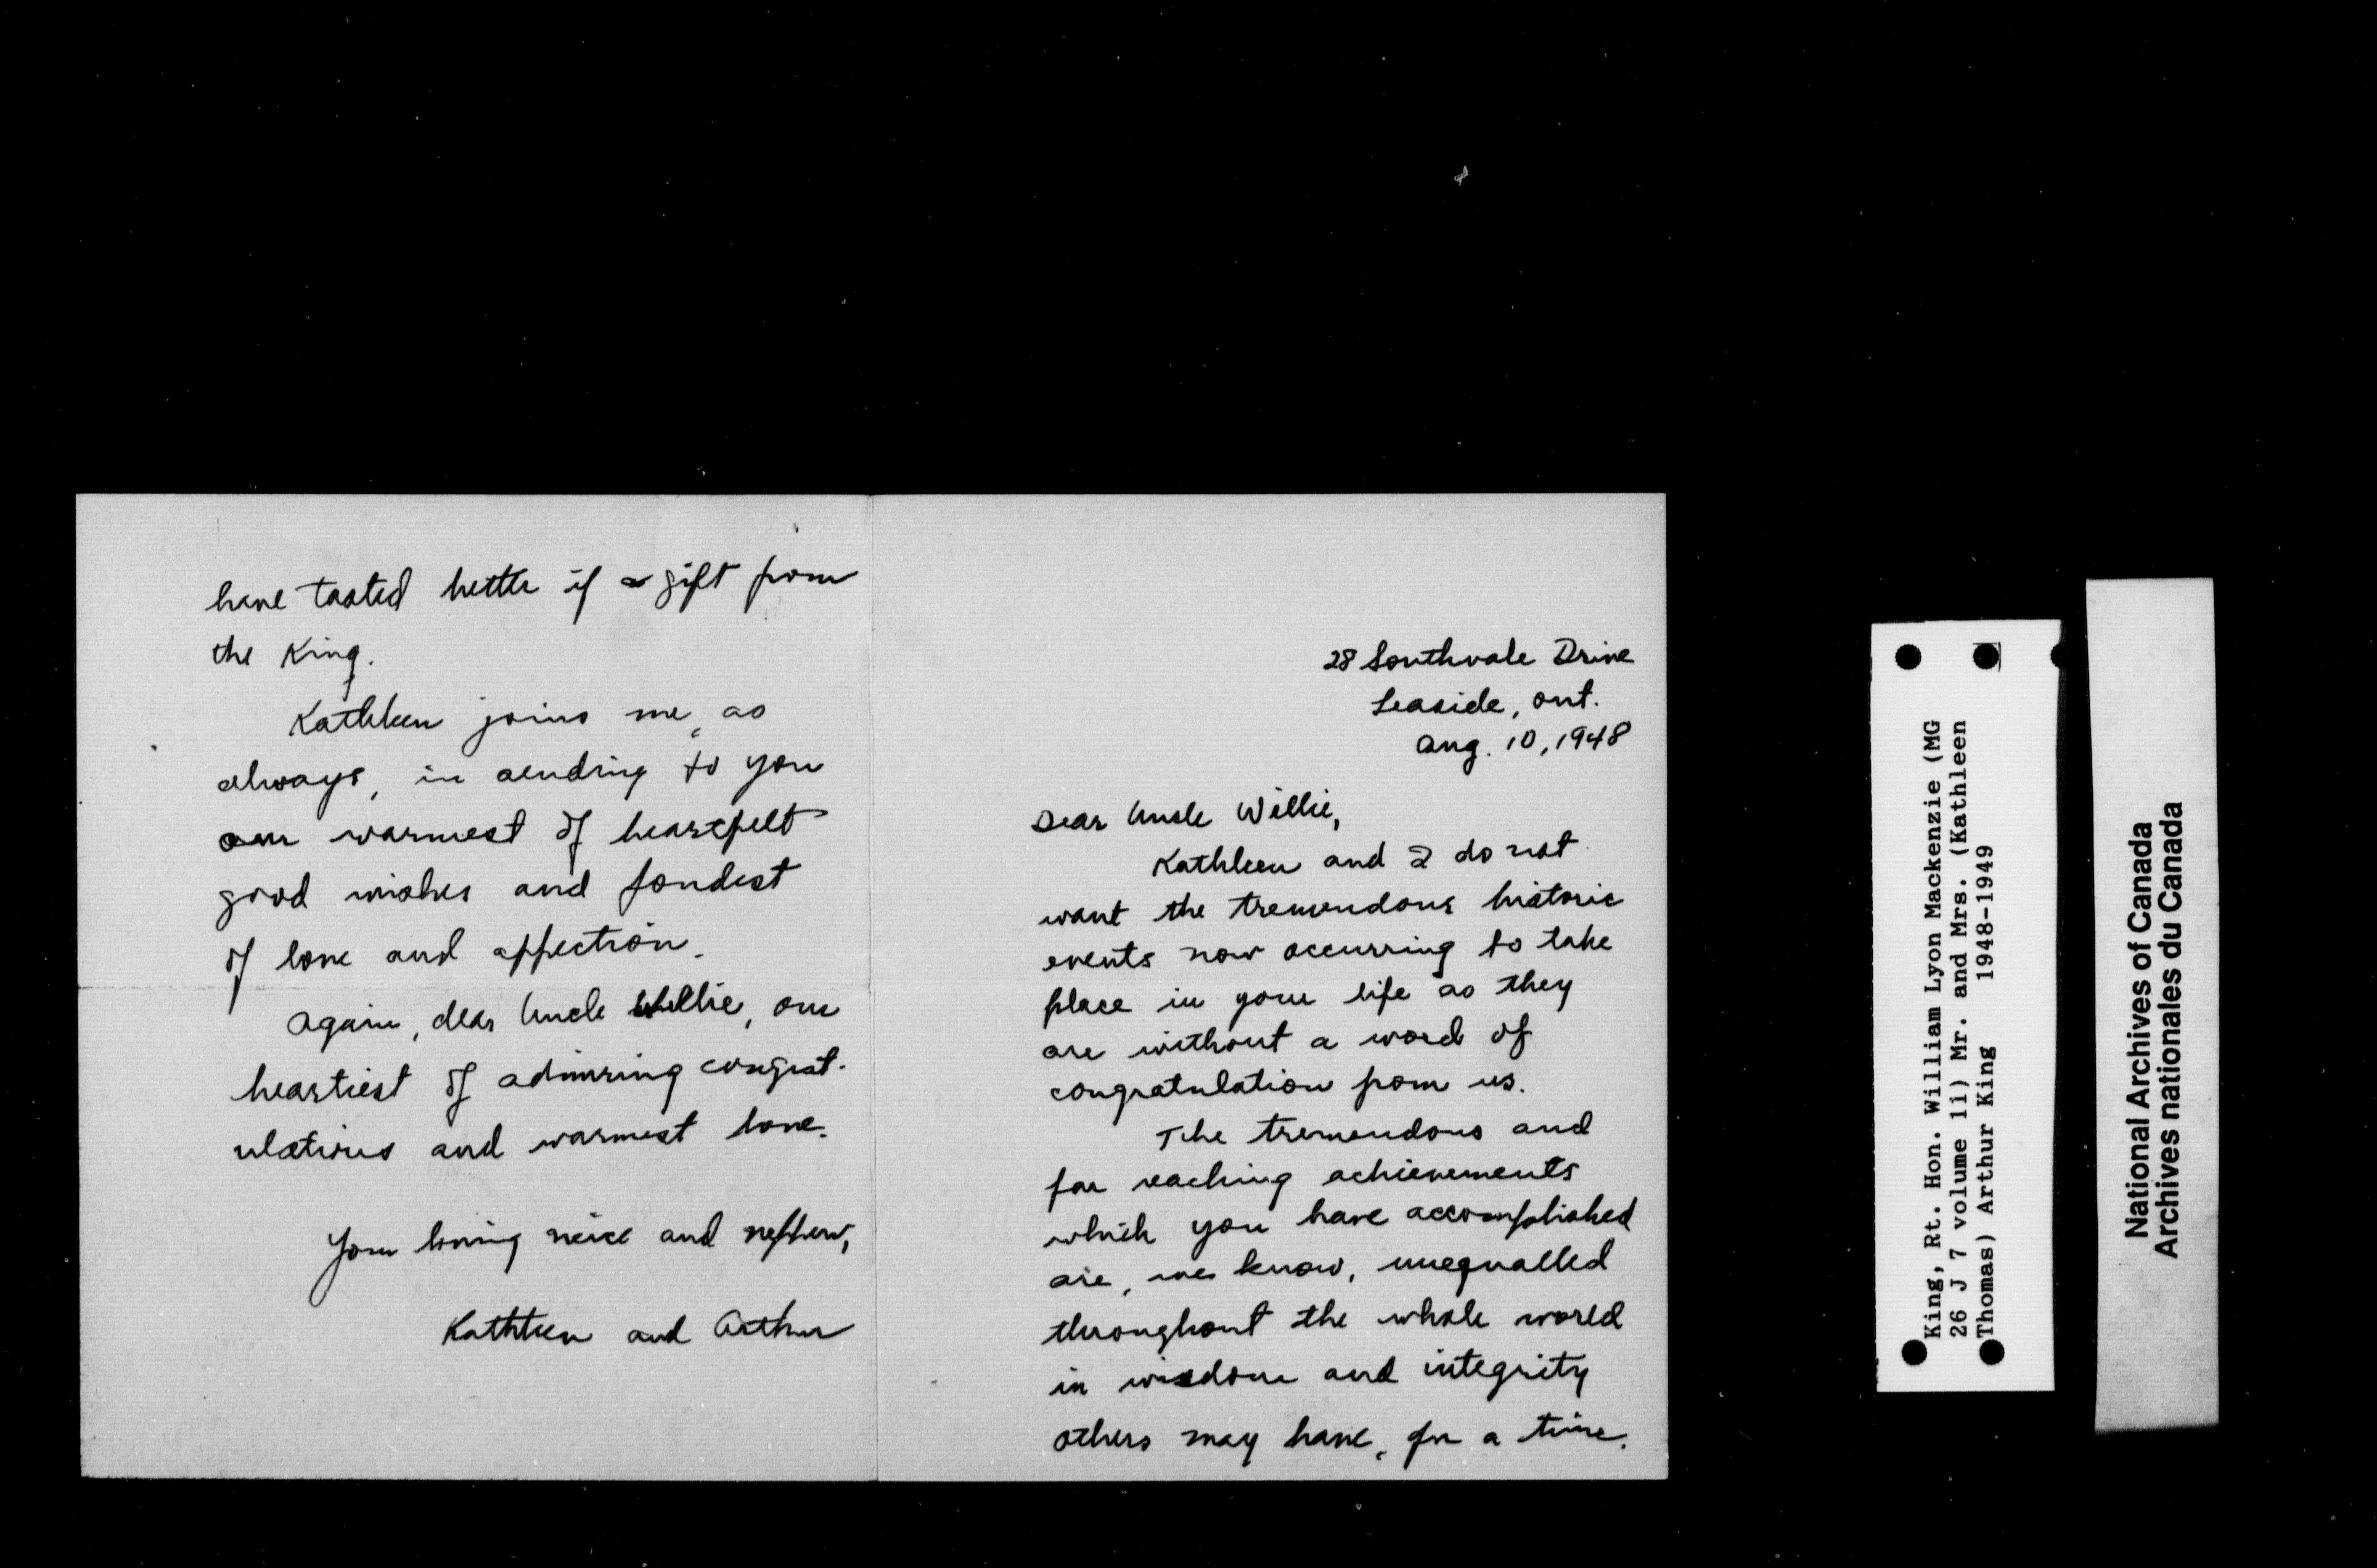 have tasted better if a gift from
the King.
Kathleen joins me, as
always, in sending to you
our warmest of heartfelt
good wishes and fondest
of love and affection.
Again, dear Uncle Willie, our
heartiest of admiring congrat-
ulations and warmest love.
Your loving neice and nephew,
Kathleen and Arthur
28 Southvale Drive
Leaside, Ont.
Aug. 10, 1948
Dear Uncle Willie,
Kathleen and I do not
want the tremendous historic
events now occurring to take
place in your life as they
are without a word of
congratulation from us.
The tremendous and
far reaching achievements
which you have accomplished
are, we know, unequalled
throughout the whole world
in wisdom and integrity
others may have, for a time,
King, Rt. Hon. William Lyon Mackenzie (MG
26 J 7 volume 11) Mr. and Mrs. (Kathleen
Thomas) Arthur King 1948-1949
National Archives of Canada
Archives nationales du Canada